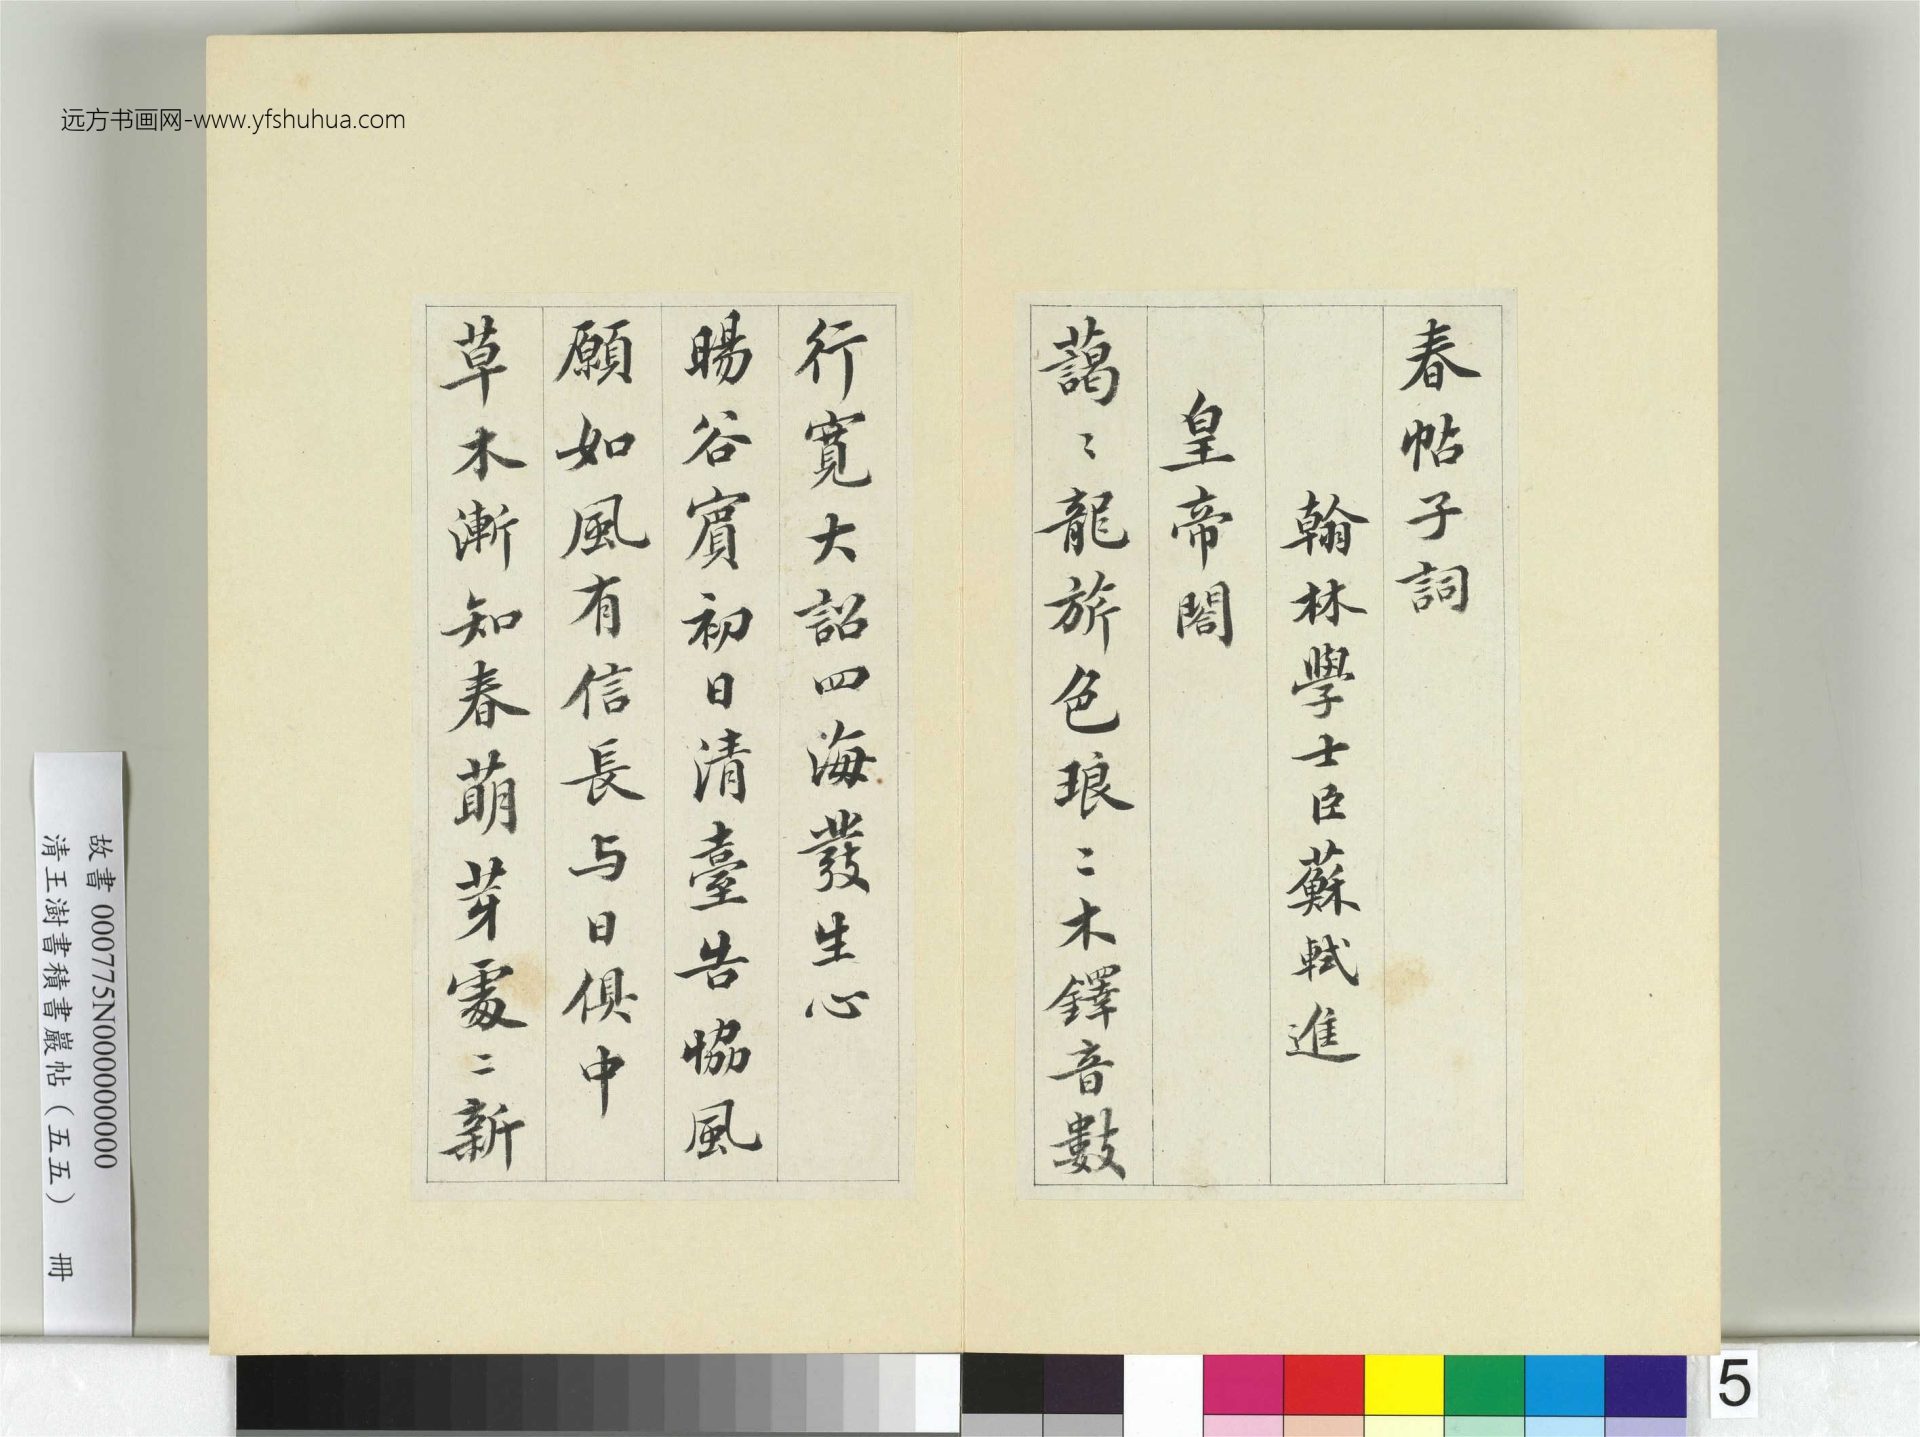 远方书画网-www.yfshuhua.com
春帖子詞
翰林學士臣蘇軾進
皇帝閣
藹〻龍旂色琅〻木鐸音數
行寬大詔四海發生心
暘谷賓初日清臺告協風
願如風有信長与日俱中
草木漸知春萌芽處〻新
故書 000775N000000000
清王澍書積書巖帖（五五） 冊
5